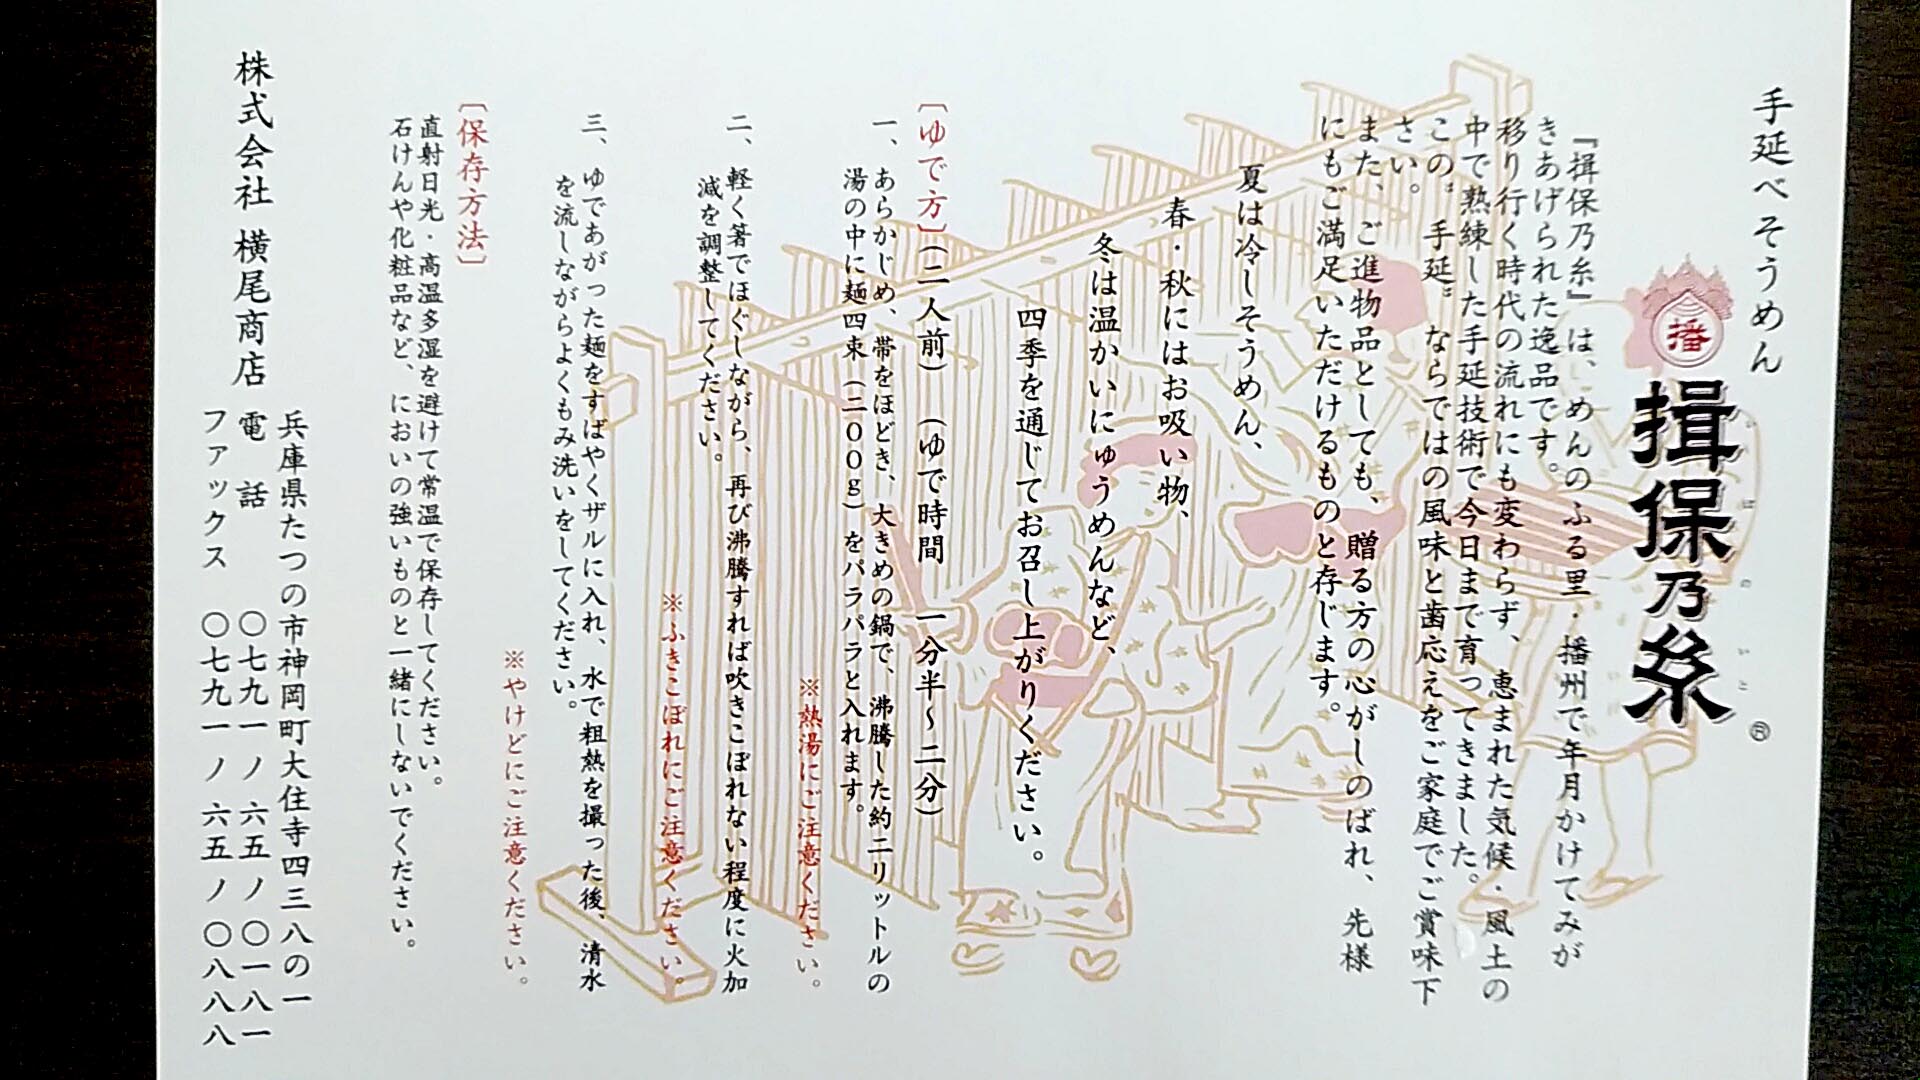 手延べそうめん
播
揖保乃糸
いぼのいと
®
『揖保乃糸』は、めんのふる里・播州で年月かけてみが
きあげられた逸品です。
移り行く時代の流れにも変わらず、恵まれた気候・風土の
中で熟練した手延技術で今日まで育ってきました。
この〝手延〟ならではの風味と歯応えをご家庭でご賞味下
さい。
また、ご進物品としても、贈る方の心がしのばれ、先様
にもご満足いただけるものと存じます。
夏は冷しそうめん、
春・秋にはお吸い物、
冬は温かいにゅうめんなど、
四季を通じてお召し上がりください。
〔ゆで方〕(二人前) (ゆで時間 一分半~二分)
一、あらかじめ、帯をほどき、大きめの鍋で、沸騰した約二リットルの
湯の中に麺四束(二〇〇g)をパラパラと入れます。
※熱湯にご注意ください。
二、軽く箸でほぐしながら、再び沸騰すれば吹きこぼれない程度に火加
減を調整してください。
※ふきこぼれにご注意ください。
三、ゆであがった麺をすばやくザルに入れ、水で粗熱を撮った後、清水
を流しながらよくもみ洗いをしてください。
※やけどにご注意ください。
〔保存方法〕
直射日光・高温多湿を避けて常温で保存してください。
石けんや化粧品など、においの強いものと一緒にしないでください。
株式会社 横尾商店
兵庫県たつの市神岡町大住寺四三八の一
電話 〇七九一ノ六五ノ〇一八一
ファックス 〇七九一ノ六五ノ〇八八八